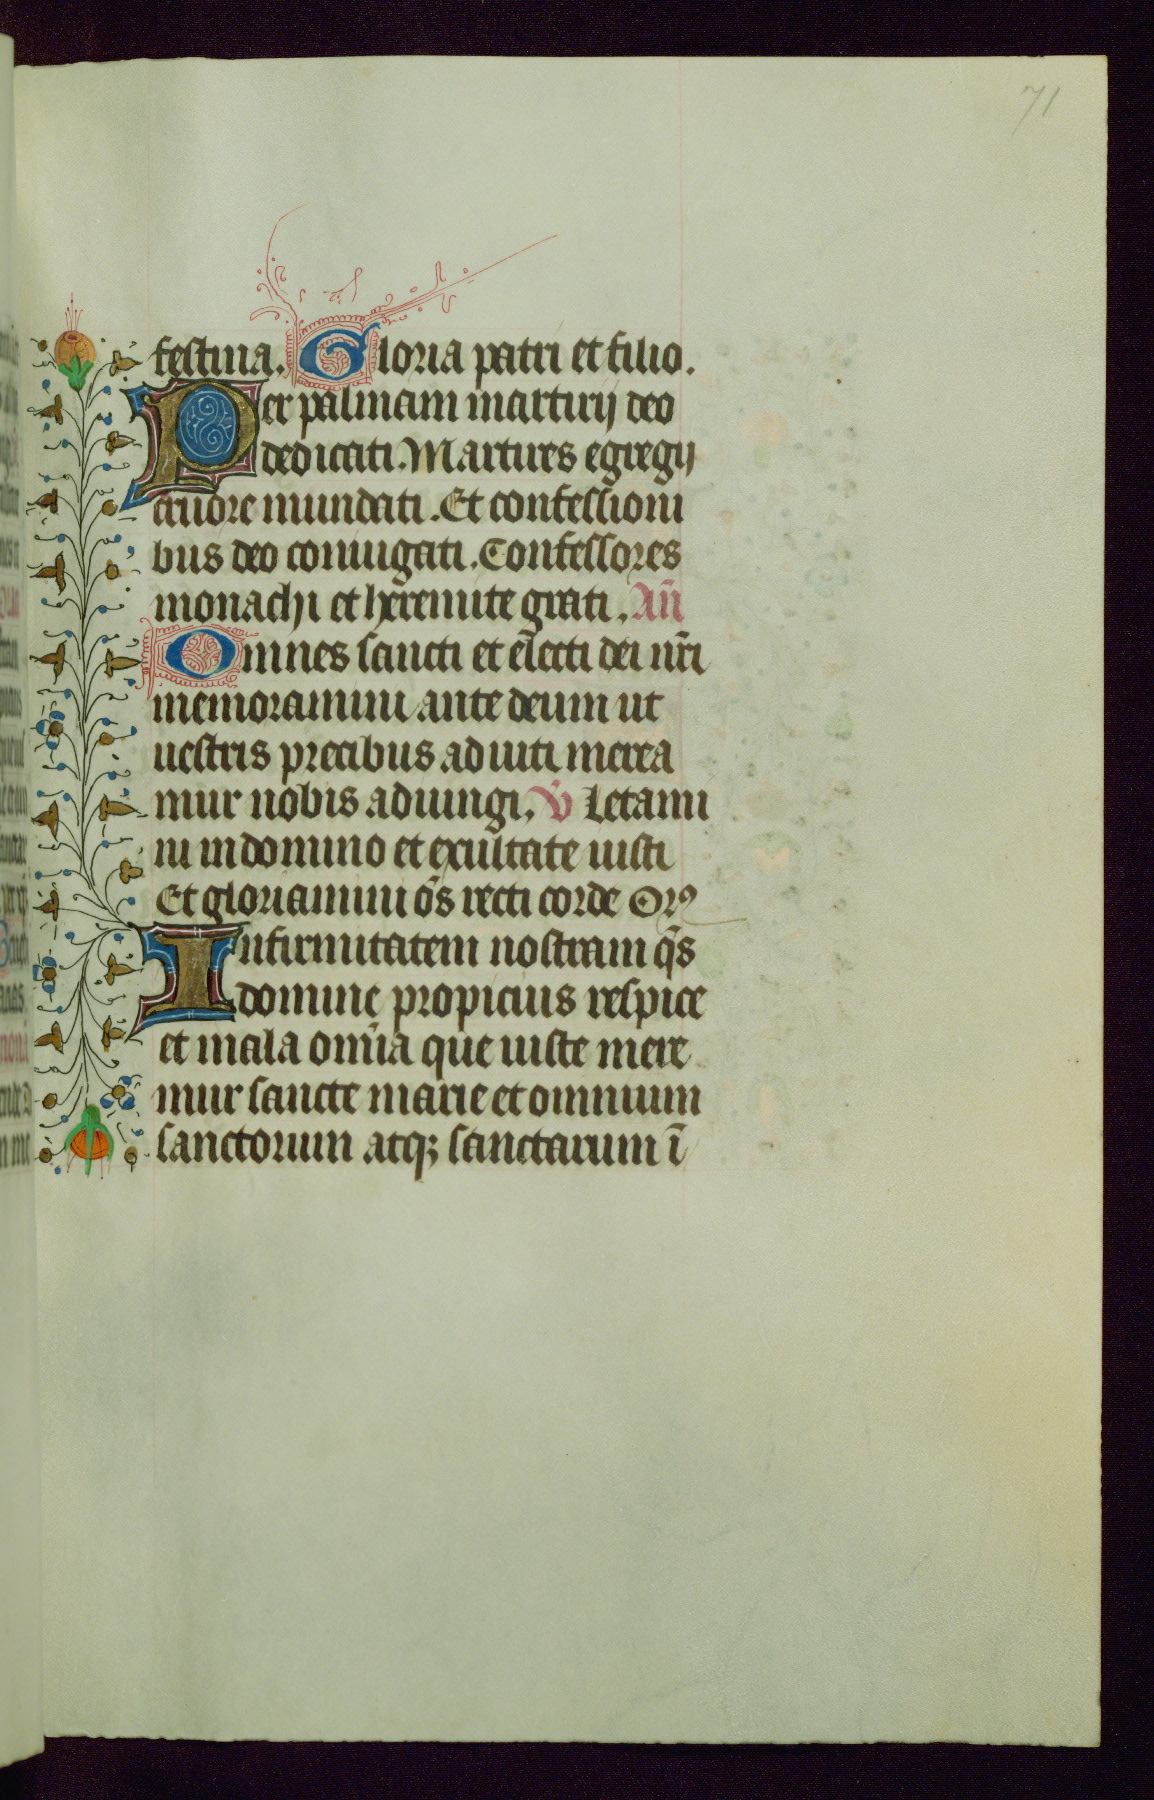 71
festina. Gloria patri et filio.
Per palmam martirij deo
dedicati. Martires egregij
cruore mundati. Et confessioni
bus deo coniugati. Confessores
monachi et heremite grati. An̄
Omnes sancti et electi dei nr̄i
memoramini ante deum ut
uestris precibus adiuti merea
mur nobis adiungi. V̄ Letami
ni in domino et exultate iusti
Et gloriamini om̄s recti corde Orꝰ
Infirmitatem nostram q̄s
domine propicius respice
et mala om̄ia que iuste mere
mur sancte marie et omnium
sanctorum atqꝫ sanctarum ī